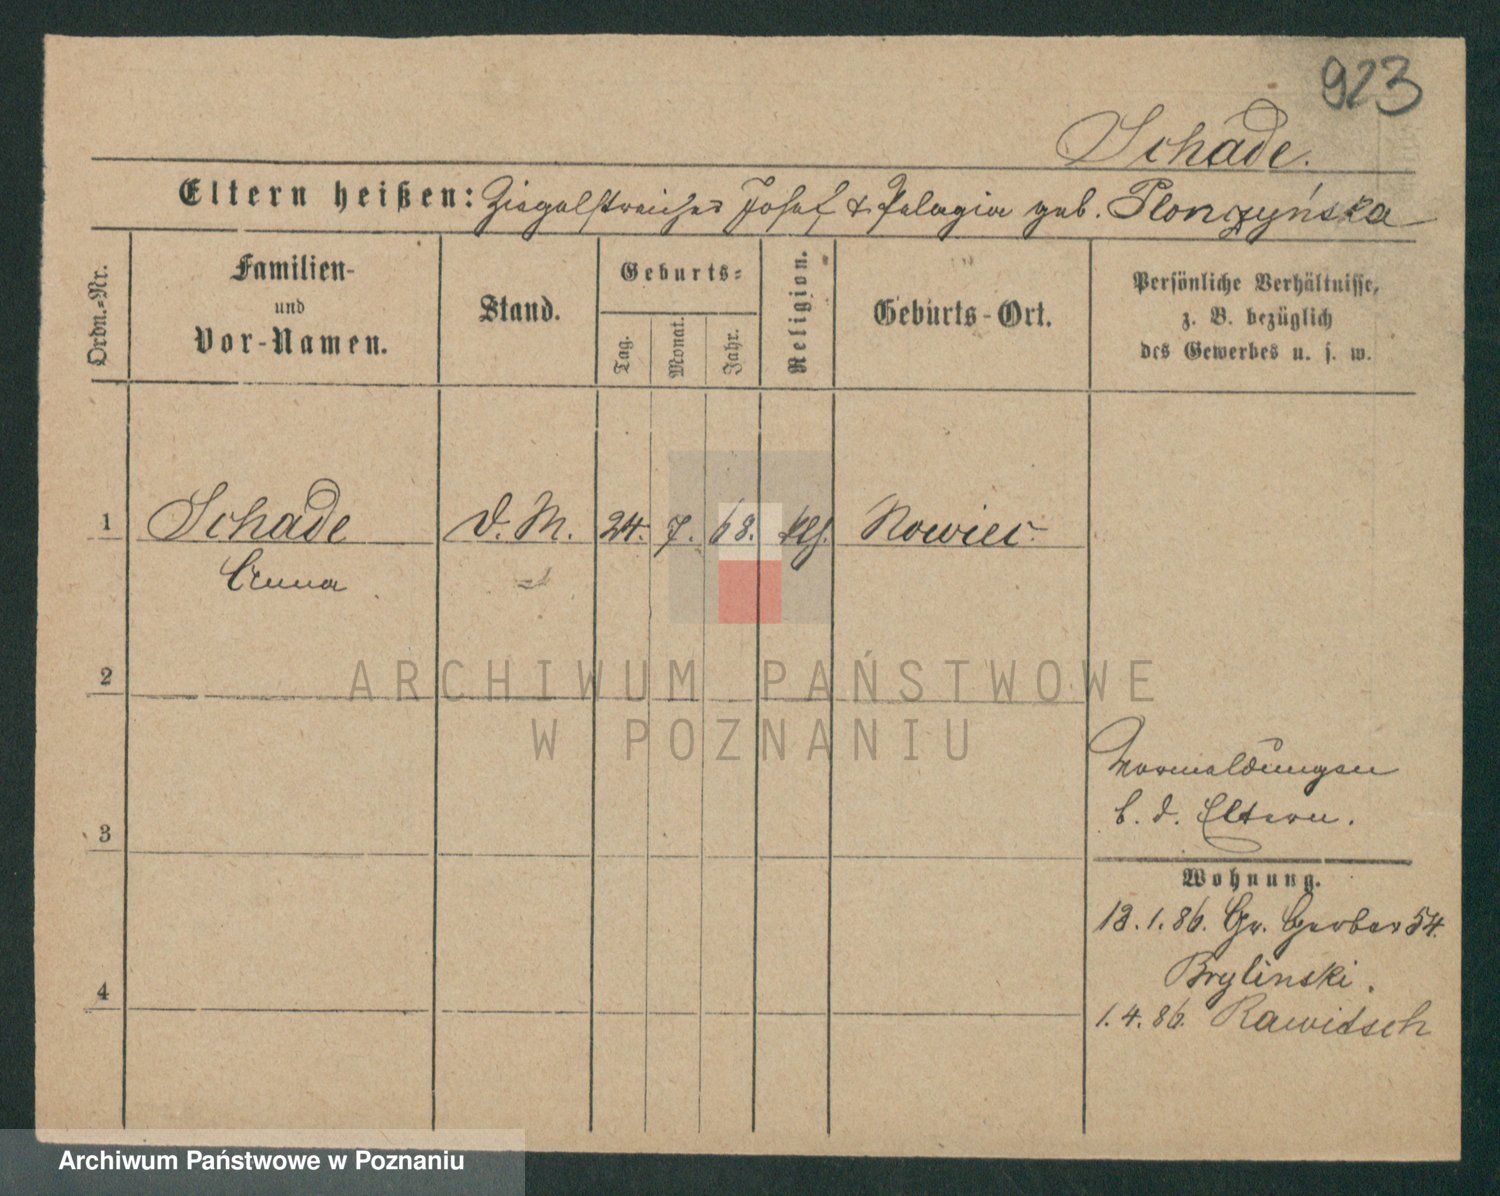 923
Schade.
Eltern heißen: Ziegelstreicher Josef & Pelagia geb. Plonczyńska
Ordn.-Nr.
Familien-
und
Vor-Namen.
Stand.
Geburts-
Tag.
Monat.
Jahr.
Religion.
Geburts-Ort.
Persönliche Verhältnisse,
z. B. bezüglich
des Gewerbes u. s. w.
1 Schade D. M. 24. 7. 68. klh. Nowiec
Anna
2
3
4
Vormeldungen
b. d. Eltern.
Wohnung.
18.1.86. Gr. Gerber 54.
Brylinski.
1.4.86. Rawitsch
ARCHIWUM PAŃSTWOWE
W POZNANIU
Archiwum Państwowe w Poznaniu